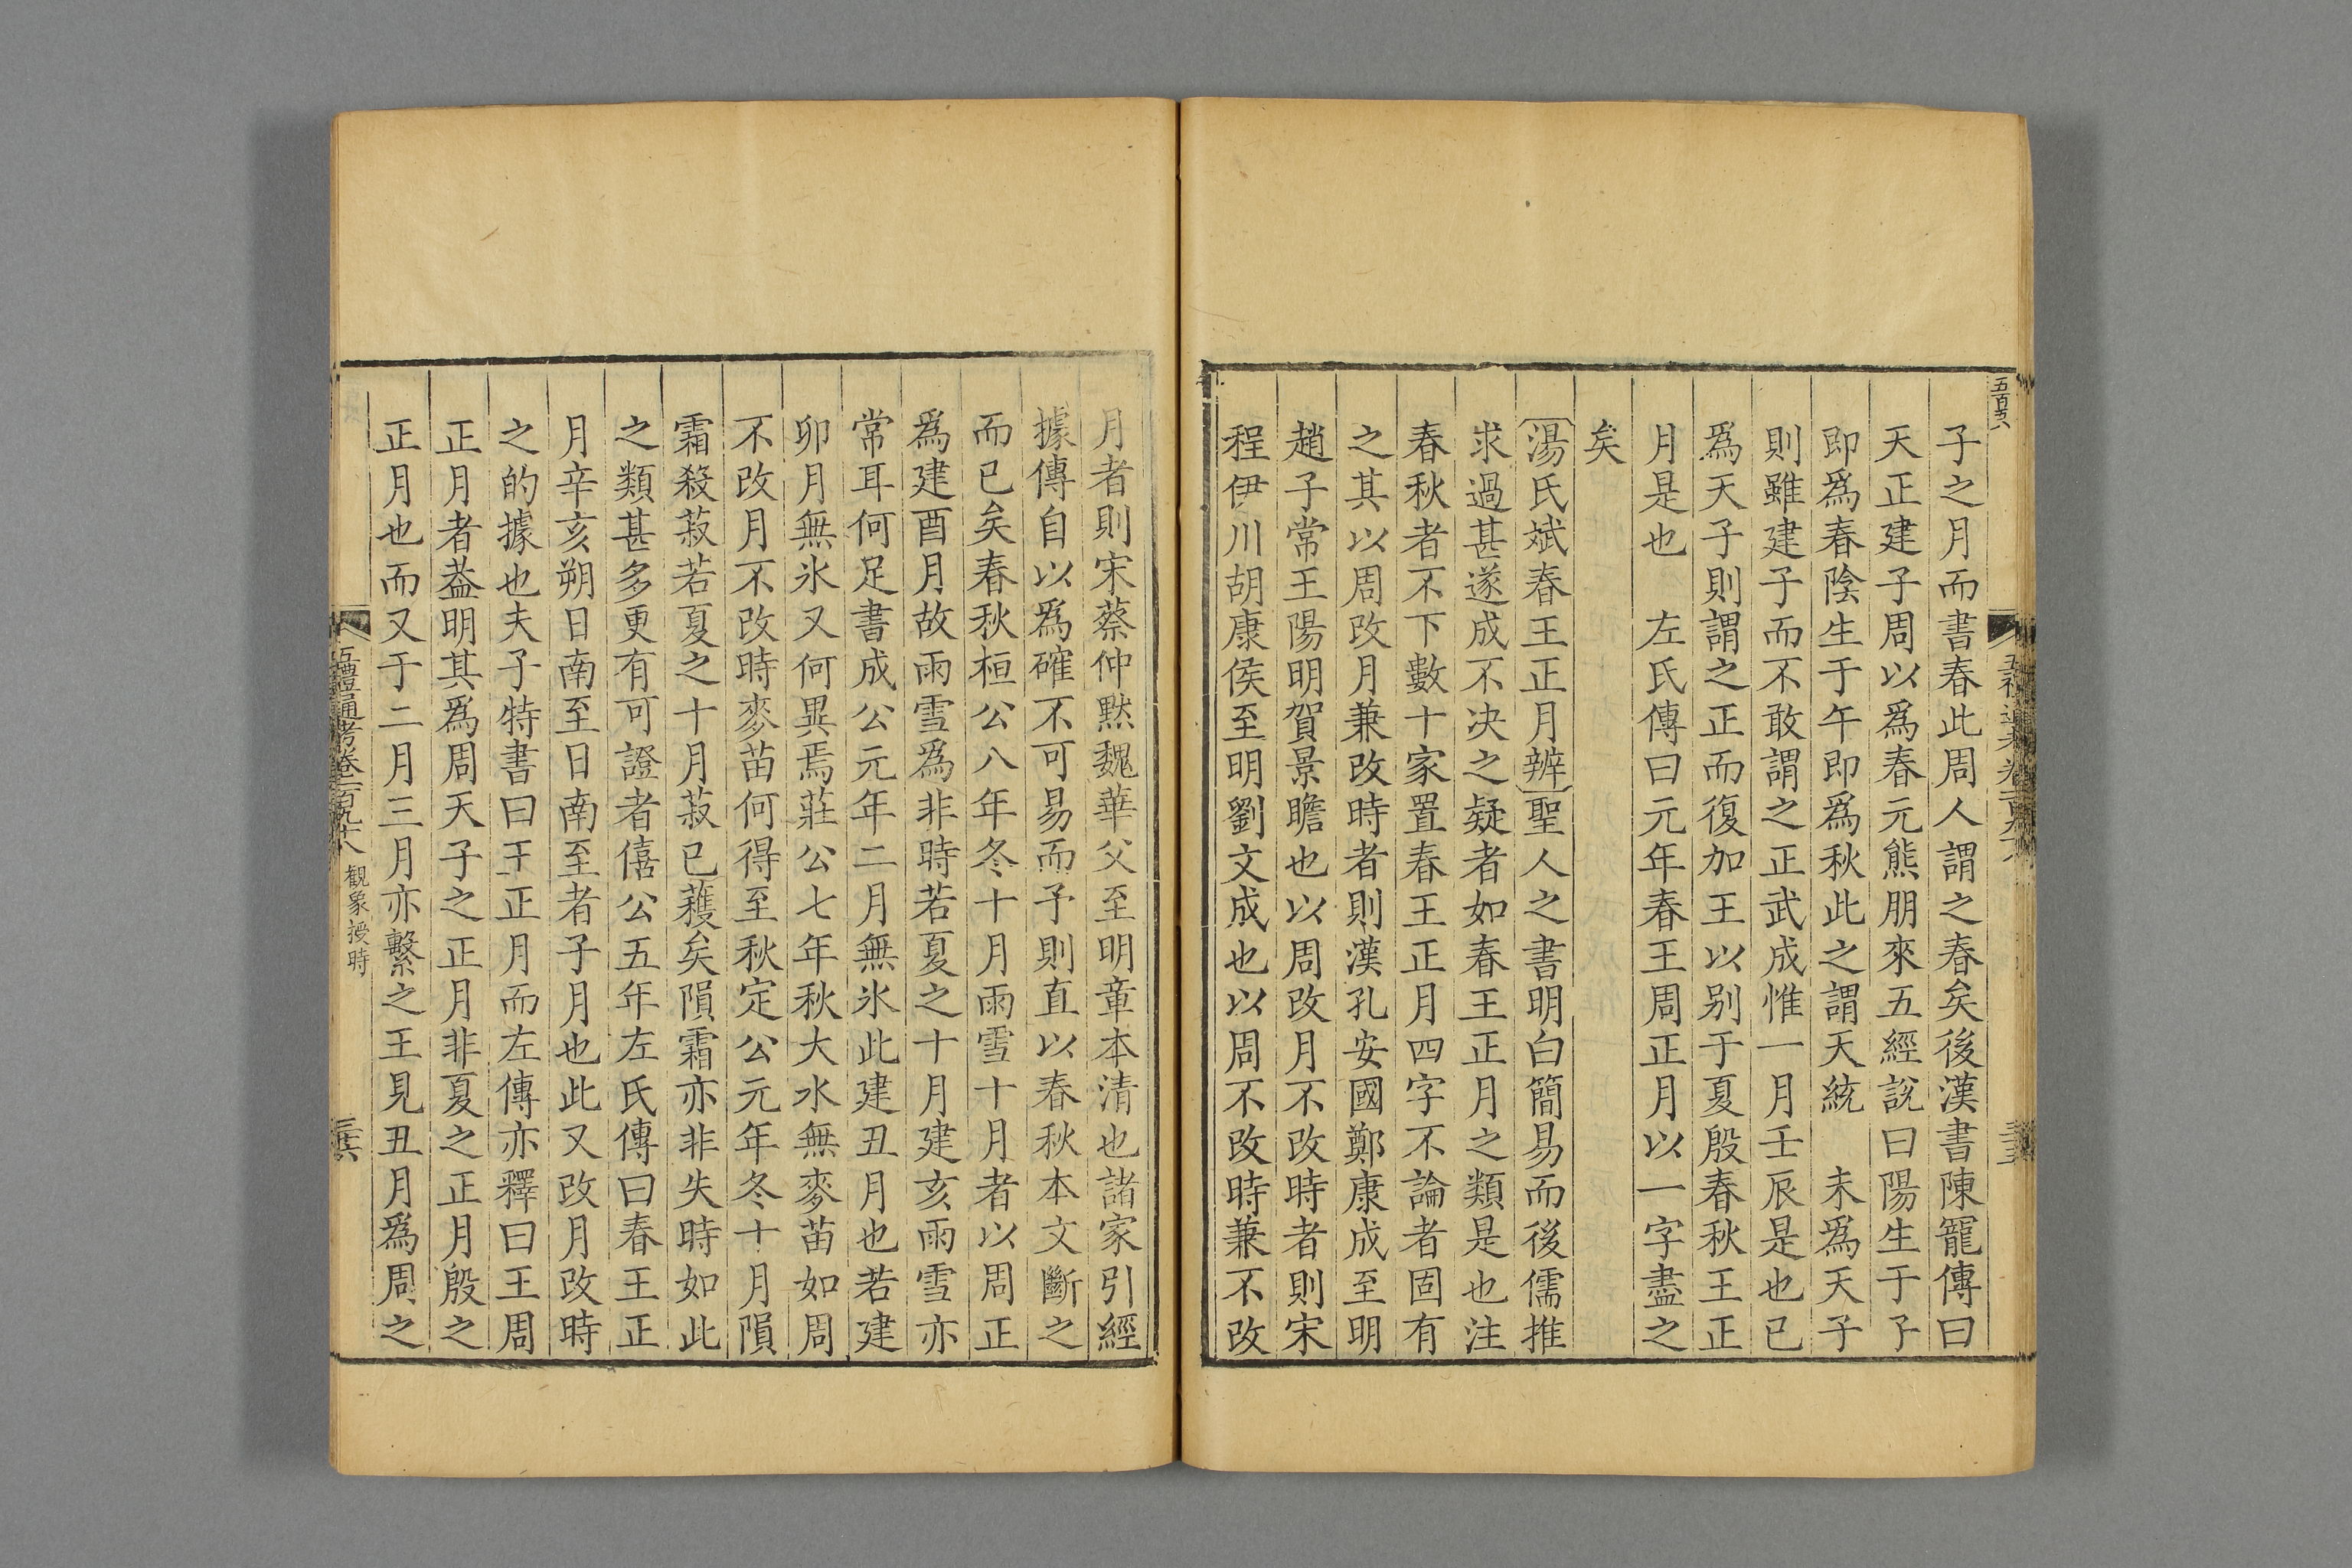 五百六
子之月而書春此周人謂之春矣後漢書陳寵傳曰
天正建子周以爲春元熊朋來五經說曰陽生于子
即爲春陰生于午即爲秋此之謂天統　未爲天子
則雖建子而不敢謂之正武成惟一月壬辰是也已
爲天子則謂之正而復加王以别于夏殷春秋王正
月是也　左氏傳曰元年春王周正月以一字盡之
矣
湯氏斌春王正月辨聖人之書明白簡易而後儒推
求過甚遂成不决之疑者如春王正月之類是也注
春秋者不下數十家置春王正月四字不論者固有
之其以周改月兼改時者則漢孔安國鄭康成至明
趙子常王陽明賀景瞻也以周改月不改時者則宋
程伊川胡康侯至明劉文成也以周不改時兼不改
月者則宋蔡仲黙魏華父至明章本清也諸家引經
據傳自以爲確不可易而予則直以春秋本文斷之
而已矣春秋桓公八年冬十月雨雪十月者以周正
爲建酉月故雨雪爲非時若夏之十月建亥雨雪亦
常耳何足書成公元年二月無氷此建丑月也若建
卯月無氷又何異焉莊公七年秋大水無麥苗如周
不改月不改時麥苗何得至秋定公元年冬十月隕
霜殺菽若夏之十月菽已蓷矣隕霜亦非失時如此
之類甚多更有可證者僖公五年左氏傳曰春王正
月辛亥朔日南至日南至者子月也此又改月改時
之的據也夫子特書曰王正月而左傳亦釋曰王周
正月者葢明其爲周天子之正月非夏之正月殷之
正月也而又于二月三月亦繫之王見丑月爲周之
五禮通考卷一百九十六 觀象授時